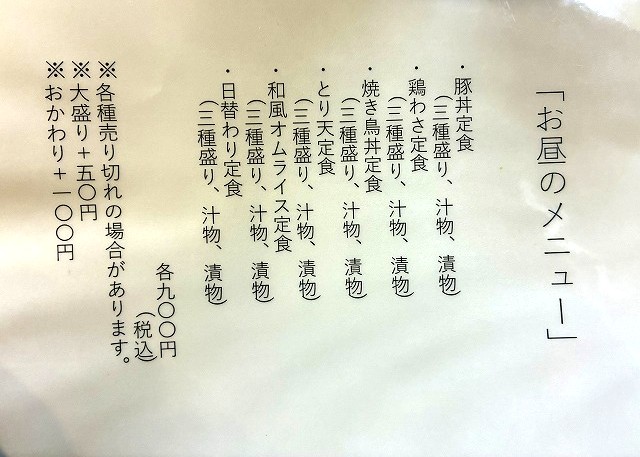 「お昼のメニュー」
・豚丼定食
（三種盛り、汁物、漬物）
・鶏わさ定食
（三種盛り、汁物、漬物）
・焼き鳥丼定食
（三種盛り、汁物、漬物）
・とり天定食
（三種盛り、汁物、漬物）
・和風オムライス定食
（三種盛り、汁物、漬物）
・日替わり定食
（三種盛り、汁物、漬物）
各九〇〇円
（税込）
※各種売り切れの場合があります。
※大盛り＋五〇円
※おかわり＋一〇〇円